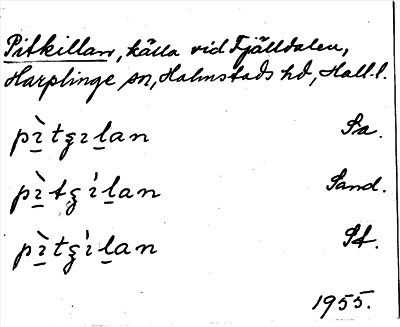 Pitkillan, källa vid Fjälldalen,
Harplinge sn, Halmstads hd, Hall.l.
pìtʒɩlan Sa.
pìtʒɩ̀lan Sand.
pìtʒɩ̀lan St.
1955.